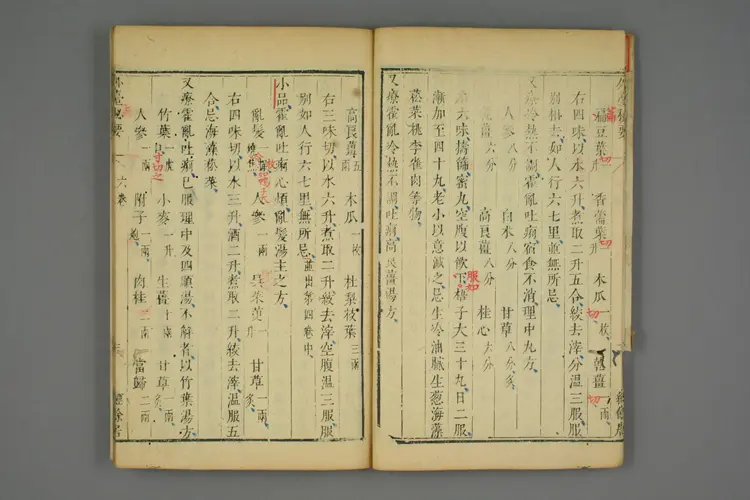 藊豆葉 切一升 香薷葉 切一升 木瓜 一枚 乾薑 一兩
右四味切以水六升煮取二升五合絞去滓分溫三服服
別相去如人行六七里並無所忌
又療冷熱不調霍亂吐痢宿食不消理中丸方
人參 八分 白朮 八分 甘草 八分炙
乾薑 六分 高良薑 八分 桂心 六分
右六味擣篩蜜丸空腹以飲下梧子大三十丸日二服
服如
漸加至四十丸老小以意減之忌生冷油膩生葱海藻
菘菜桃李雀肉等物
又療霍亂冷熱不調吐痢高良薑湯方
高良薑 五兩 木瓜 一枚 杜梨枝葉 三兩
右三味切以水六升煮取二升絞去滓空腹溫三服服
別如人行六七里無所忌 並出第四卷中
小品霍亂吐痢心煩亂髮湯主之方
亂髮 一兩燒 人參 一兩 吳茱萸 一升 甘草 一兩炙
右四味切以水三升酒二升煮取二升絞去滓溫服五
合忌海藻菘菜
又療霍亂吐痢已服理中及四順湯不解者以竹葉湯方
竹葉 一虎口 小麥 一升 生薑 十兩 甘草 一兩炙
人參 一兩 附子 一兩炮 肉桂 二兩 當歸 二兩
外臺秘要 六卷 經餘居